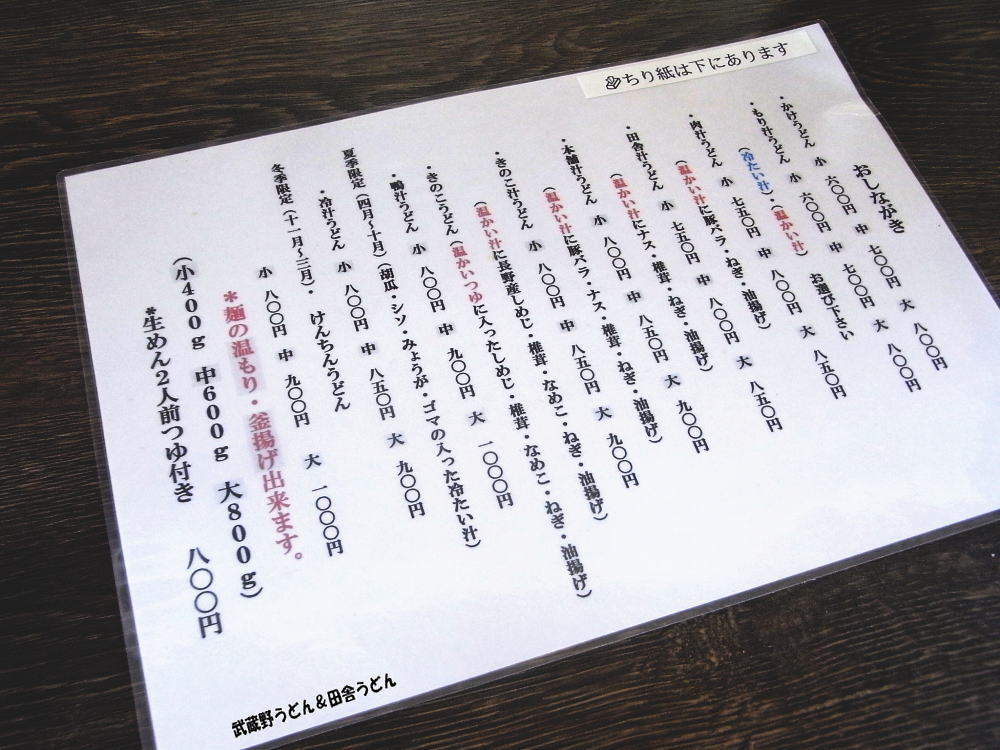 ちり紙は下にあります
おしながき
・かけうどん 小 六〇〇円 中 七〇〇円 大 八〇〇円
・もり汁うどん 小 六〇〇円 中 七〇〇円 大 八〇〇円
(冷たい汁)・(温かい汁) お選び下さい
・肉汁うどん 小 七五〇円 中 八〇〇円 大 八五〇円
(温かい汁に豚バラ・ねぎ・油揚げ)
・田舎汁うどん 小 七五〇円 中 八〇〇円 大 八五〇円
(温かい汁にナス・椎茸・ねぎ・油揚げ)
・本舗汁うどん 小 八〇〇円 中 八五〇円 大 九〇〇円
(温かい汁に豚バラ・ナス・椎茸・ねぎ・油揚げ)
・きのこ汁うどん 小 八〇〇円 中 八五〇円 大 九〇〇円
(温かい汁に長野産しめじ・椎茸・なめこ・ねぎ・油揚げ)
・きのこうどん(温かいつゆに入ったしめじ・椎茸・なめこ・ねぎ・油揚げ)
・鴨汁うどん 小 八〇〇円 中 九〇〇円 大 一〇〇〇円
夏季限定(四月〜十月)(胡瓜・シソ・みょうが・ゴマの入った冷たい汁)
・冷汁うどん 小 八〇〇円 中 八五〇円 大 九〇〇円
冬季限定(十一月〜三月)・けんちんうどん
小 八〇〇円 中 九〇〇円 大 一〇〇〇円
*麺の温もり・釜揚げ出来ます。
(小400g 中600g 大800g)
*生めん2人前つゆ付き 八〇〇円
武蔵野うどん&田舎うどん